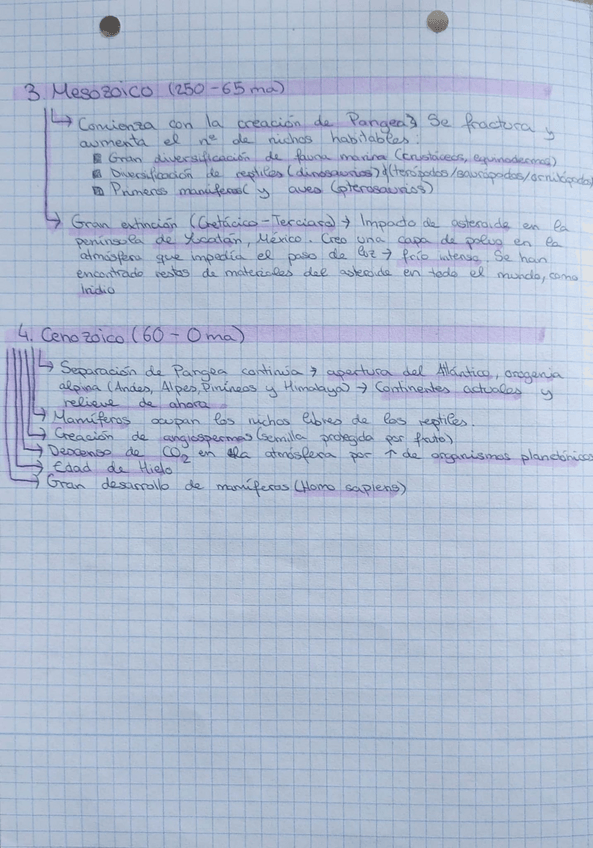 3 Mesozoico (250-65ma)
↳ Comienza con la creación de Pangea → Se fractura y
aumenta el nº de nichos habitables:
Gran diversificación de fauna marina (crustáceos, equinodermos)
Diversificación de reptiles (dinosaurios) (terópodos/saurópodos/ornitópodos)
Primeros mamíferos y aves (pterosaurios)
↳ Gran extinción (Cretácico-Terciario) → Impacto de asteroide en la
península de Yucatán, México. Creo una capa de polvo en la
atmósfera que impedía el paso de luz → frío intenso. Se han
encontrado restos de materiales del asteroide en todo el mundo, como
Iridio
4. Cenozoico (60-0ma)
↳ Separación de Pangea continúa → apertura del Atlántico, orogenia
alpina (Andes, Alpes, Pirineos y Himalaya) → Continentes actuales y
relieve de ahora
↳ Mamíferos ocupan los nichos libres de los reptiles.
↳ Creación de angiospermas (semilla protegida por fruto)
↳ Descenso de CO2 en la atmósfera por ↑ de organismos planctónicos
↳ Edad de Hielo
↳ Gran desarrollo de mamíferos (Homo sapiens)